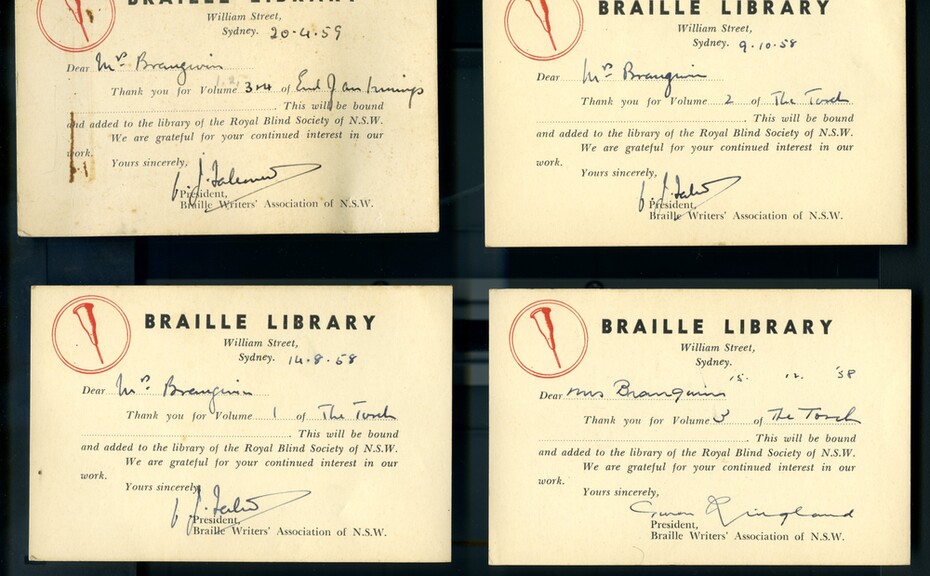 BRAILLE LIBRARY
William Street,
Sydney. 20.4.59
Dear Mrs Brangwin
Thank you for Volume 3+4 of End of an Innings
. This will be bound
and added to the library of the Royal Blind Society of N.S.W.
We are grateful for your continued interest in our
work.
Yours sincerely,
President,
Braille Writers' Association of N.S.W.
BRAILLE LIBRARY
William Street,
Sydney. 9.10.58
Dear Mrs Brangwin
Thank you for Volume 2 of The Torch
. This will be bound
and added to the library of the Royal Blind Society of N.S.W.
We are grateful for your continued interest in our
work.
Yours sincerely,
President,
Braille Writers' Association of N.S.W.
BRAILLE LIBRARY
William Street,
Sydney. 14.8.58
Dear Mrs Brangwin
Thank you for Volume 1 of The Torch
. This will be bound
and added to the library of the Royal Blind Society of N.S.W.
We are grateful for your continued interest in our
work.
Yours sincerely,
President,
Braille Writers' Association of N.S.W.
BRAILLE LIBRARY
William Street,
Sydney.
15. 12. '58
Dear Mrs Brangwin
Thank you for Volume 3 of The Torch
. This will be bound
and added to the library of the Royal Blind Society of N.S.W.
We are grateful for your continued interest in our
work.
Yours sincerely,
Ringland
President,
Braille Writers' Association of N.S.W.